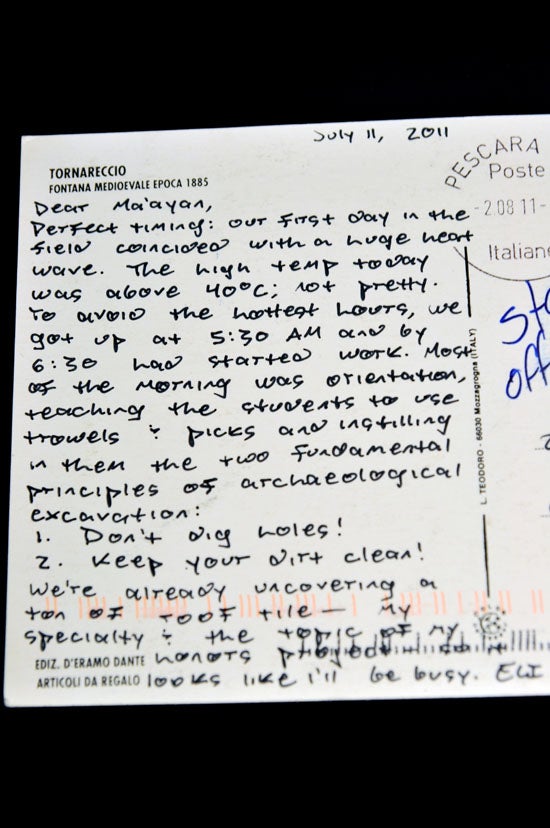 July 11, 2011
TORNARECCIO
FONTANA MEDIOEVALE EPOCA 1885
PESCARA
Poste
- 2.08 11-
Italiane
Dear Ma'ayan,
Perfect timing: our first day in the
field coincided with a huge heat
wave. The high temp today
was above 40°C; not pretty.
To avoid the hottest hours, we
got up at 5:30 AM and by
6:30 had started work. Most
of the morning was orientation,
teaching the students to use
trowels & picks and instilling
in them the two fundamental
principles of archaeological
excavation:
1. Don't dig holes!
2. Keep your dirt clean!
We're already uncovering a
ton of roof tile— my
specialty & the topic of my
honors project— so it
looks like I'll be busy. ELI
EDIZ. D'ERAMO DANTE
ARTICOLI DA REGALO
L. TEODORO - 66030 Mozzagrogna (ITALY)